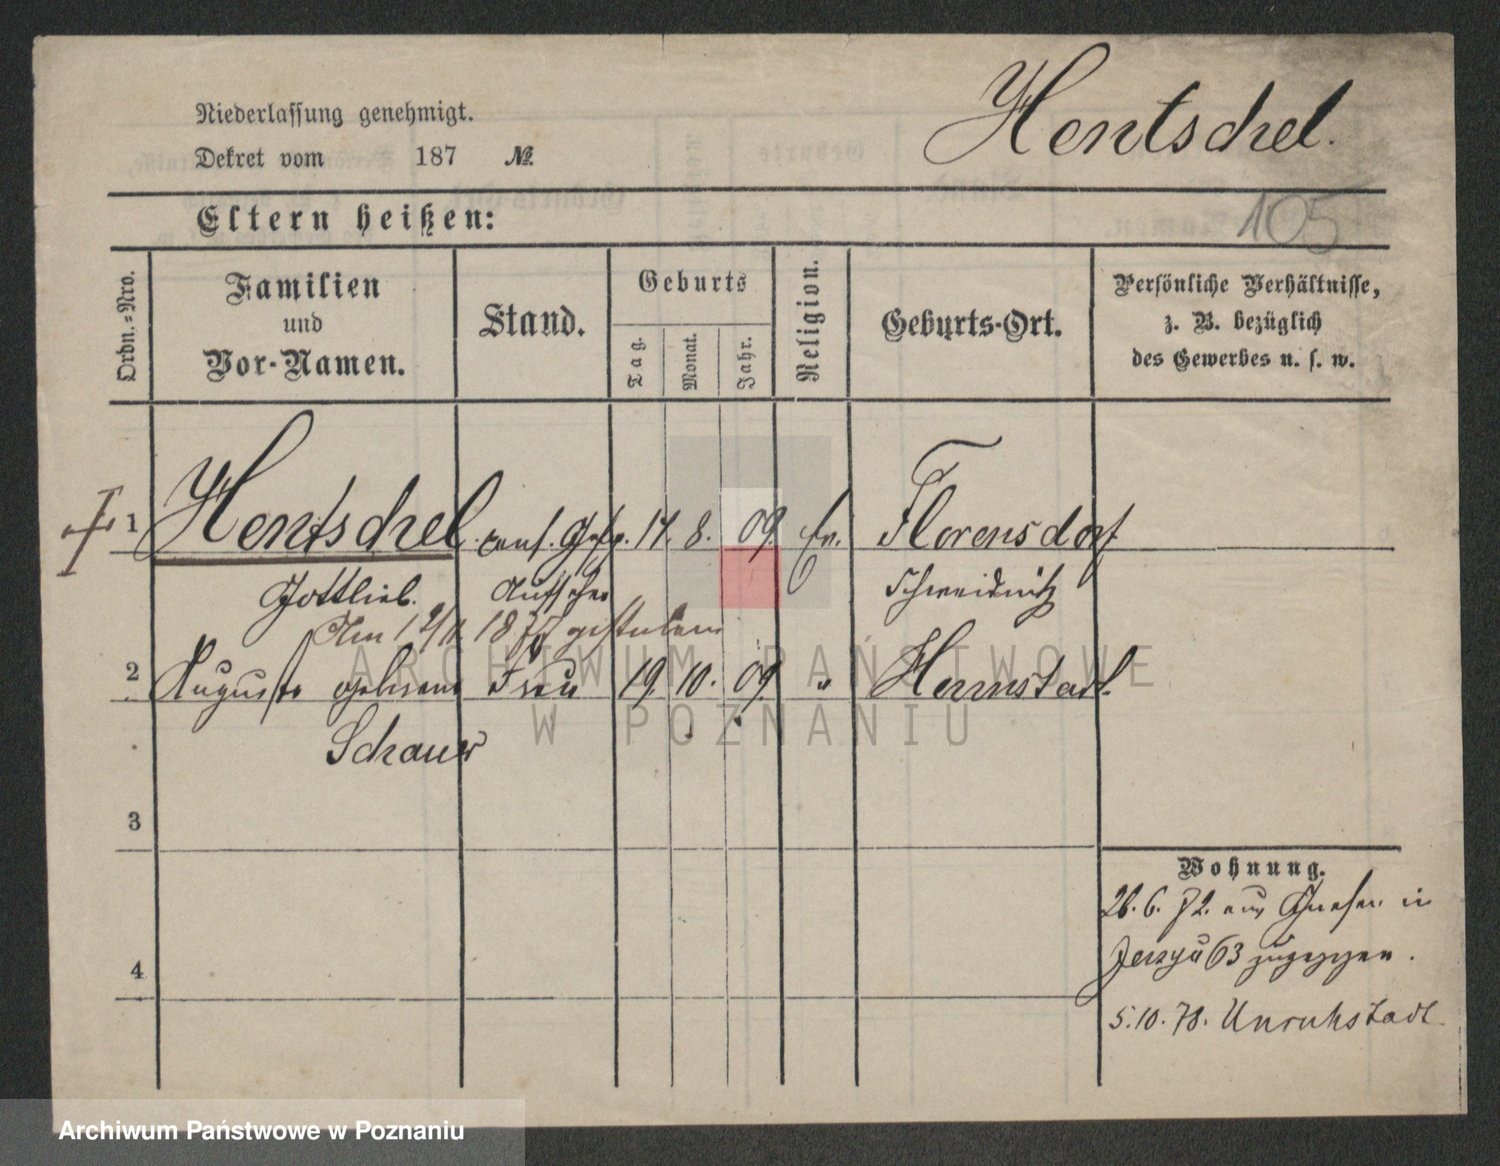 Hentschel.
Niederlassung genehmigt.
Dekret vom 187 №
105
Eltern heißen:
Ordn.-Nro.
Familien
und
Vor-Namen.
Stand.
Geburts
Tag.
Monat.
Jahr.
Religion.
Geburts-Ort.
Persönliche Verhältnisse,
z. B. bezüglich
des Gewerbes u. s. w.
1 Hentschel 8. 09. Ev. Florensdorf
Gottlieb. Aufseher Schweidnitz
Am 18 gestorben
2 Auguste geborene Frau 19. 10. 09. " Herrnstadt.
Schauer
3
4
Wohnung.
26. 6. 72. aus Gnesen in
Jerzyce 63 zugezogen.
5. 10. 78. Unruhstadt
ARCHIWUM PAŃSTWOWE
W POZNANIU
Archiwum Państwowe w Poznaniu